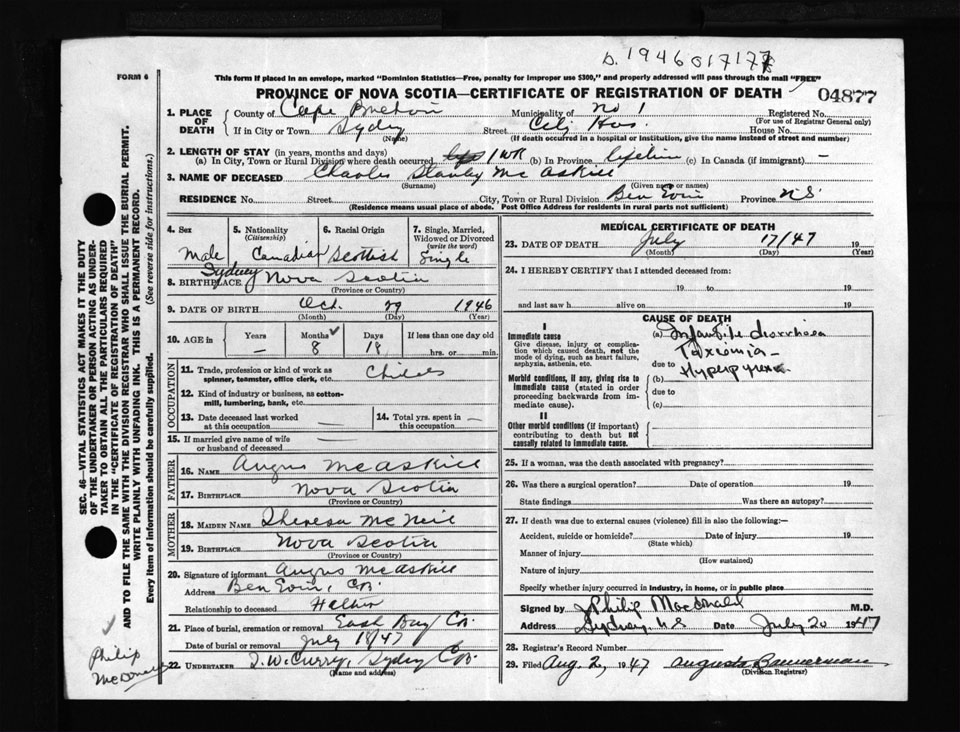 D. 1946 017177
FORM 6
This form if placed in an envelope, marked "Dominion Statistics—Free, penalty for improper use $300," and properly addressed will pass through the mail "FREE"
PROVINCE OF NOVA SCOTIA—CERTIFICATE OF REGISTRATION OF DEATH
04877
1. PLACE OF DEATH
County of Cape Breton Municipality of No 1 Registered No.
(For use of Registrar General only)
If in City or Town Sydney Street City Hos. House No.
(Name) (If death occurred in a hospital or Institution, give the name instead of street and number)
2. LENGTH OF STAY (in years, months and days)
(a) In City, Town or Rural Division where death occurred 1 WK (b) In Province lifetime (c) In Canada (if immigrant) —
3. NAME OF DECEASED Charles Stanley McAskill
(Surname) (Given name or names)
RESIDENCE No. Street City, Town or Rural Division Ben Eoin Province N.S.
(Residence means usual place of abode. Post Office Address for residents in rural parts not sufficient)
4. Sex Male
5. Nationality (Citizenship) Canadian
6. Racial Origin Scottish
7. Single, Married, Widowed or Divorced (write the word) Single
8. BIRTHPLACE Sydney Nova Scotia
(Province or Country)
9. DATE OF BIRTH Oct. 29 1946
(Month) (Day) (Year)
10. AGE in Years — Months 8 Days 18 If less than one day old
hrs. or min.
OCCUPATION
11. Trade, profession or kind of work as spinner, teamster, office clerk, etc.
12. Kind of industry or business, as cotton-mill, lumbering, bank, etc.
13. Date deceased last worked at this occupation —
14. Total yrs. spent in this occupation —
15. If married give name of wife or husband of deceased —
FATHER
16. NAME Angus McAskill
17. BIRTHPLACE Nova Scotia
(Province or Country)
MOTHER
18. MAIDEN NAME Theresa McNeil
19. BIRTHPLACE Nova Scotia
(Province or Country)
20. Signature of informant Angus McAskill
Address Ben Eoin, C.B.
Relationship to deceased Father
21. Place of burial, cremation or removal East Bay C.B.
Date of burial or removal July 18/47
22. UNDERTAKER Sydney C.B.
(Name and address)
MEDICAL CERTIFICATE OF DEATH
23. DATE OF DEATH July 17/47 19
(Month) (Day) (Year)
24. I HEREBY CERTIFY that I attended deceased from:
19 to 19
and last saw h alive on 19
CAUSE OF DEATH
I
Immediate cause
Give disease, injury or complication which caused death, not the mode of dying, such as heart failure, asphyxia, asthenia, etc.
(a) Infantile diarrhoea
Toxiemia
due to Hyperpyrexia
Morbid conditions, if any, giving rise to immediate cause (stated in order proceeding backwards from immediate cause).
(b)
due to
(c)
II
Other morbid conditions (if important) contributing to death but not causally related to immediate cause.
25. If a woman, was the death associated with pregnancy?
26. Was there a surgical operation? Date of operation 19
State findings Was there an autopsy?
27. If death was due to external causes (violence) fill in also the following:—
Accident, suicide or homicide? Date of injury 19
(State which)
Manner of injury
(How sustained)
Nature of injury
Specify whether injury occurred in industry, in home, or in public place
Signed by J Philip MacDonald M.D.
Address Sydney, N.S Date July 20 1947
28. Registrar's Record Number
29. Filed Aug. 2, 1947 Augusta Bannerman
(Division Registrar)
SEC. 46—VITAL STATISTICS ACT MAKES IT THE DUTY
OF THE UNDERTAKER OR PERSON ACTING AS UNDER-
TAKER TO OBTAIN ALL THE PARTICULARS REQUIRED
IN THE "CERTIFICATE OF REGISTRATION OF DEATH"
AND TO FILE THE SAME WITH THE DIVISION REGISTRAR WHO SHALL ISSUE THE BURIAL PERMIT.
WRITE PLAINLY WITH UNFADING INK. THIS IS A PERMANENT RECORD.
Every item of information should be carefully supplied. (See reverse side for instructions.)
Philip
McDonald